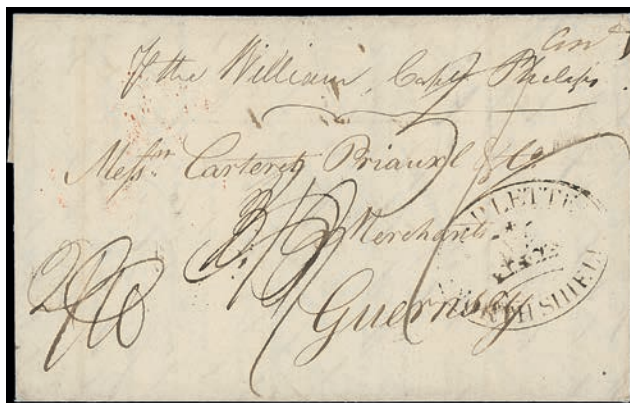 P the William, Capt Phelips
Messrs Carteret Priaulx & Co
Merchants
Guernsey
P LETTE
TH SHIEL